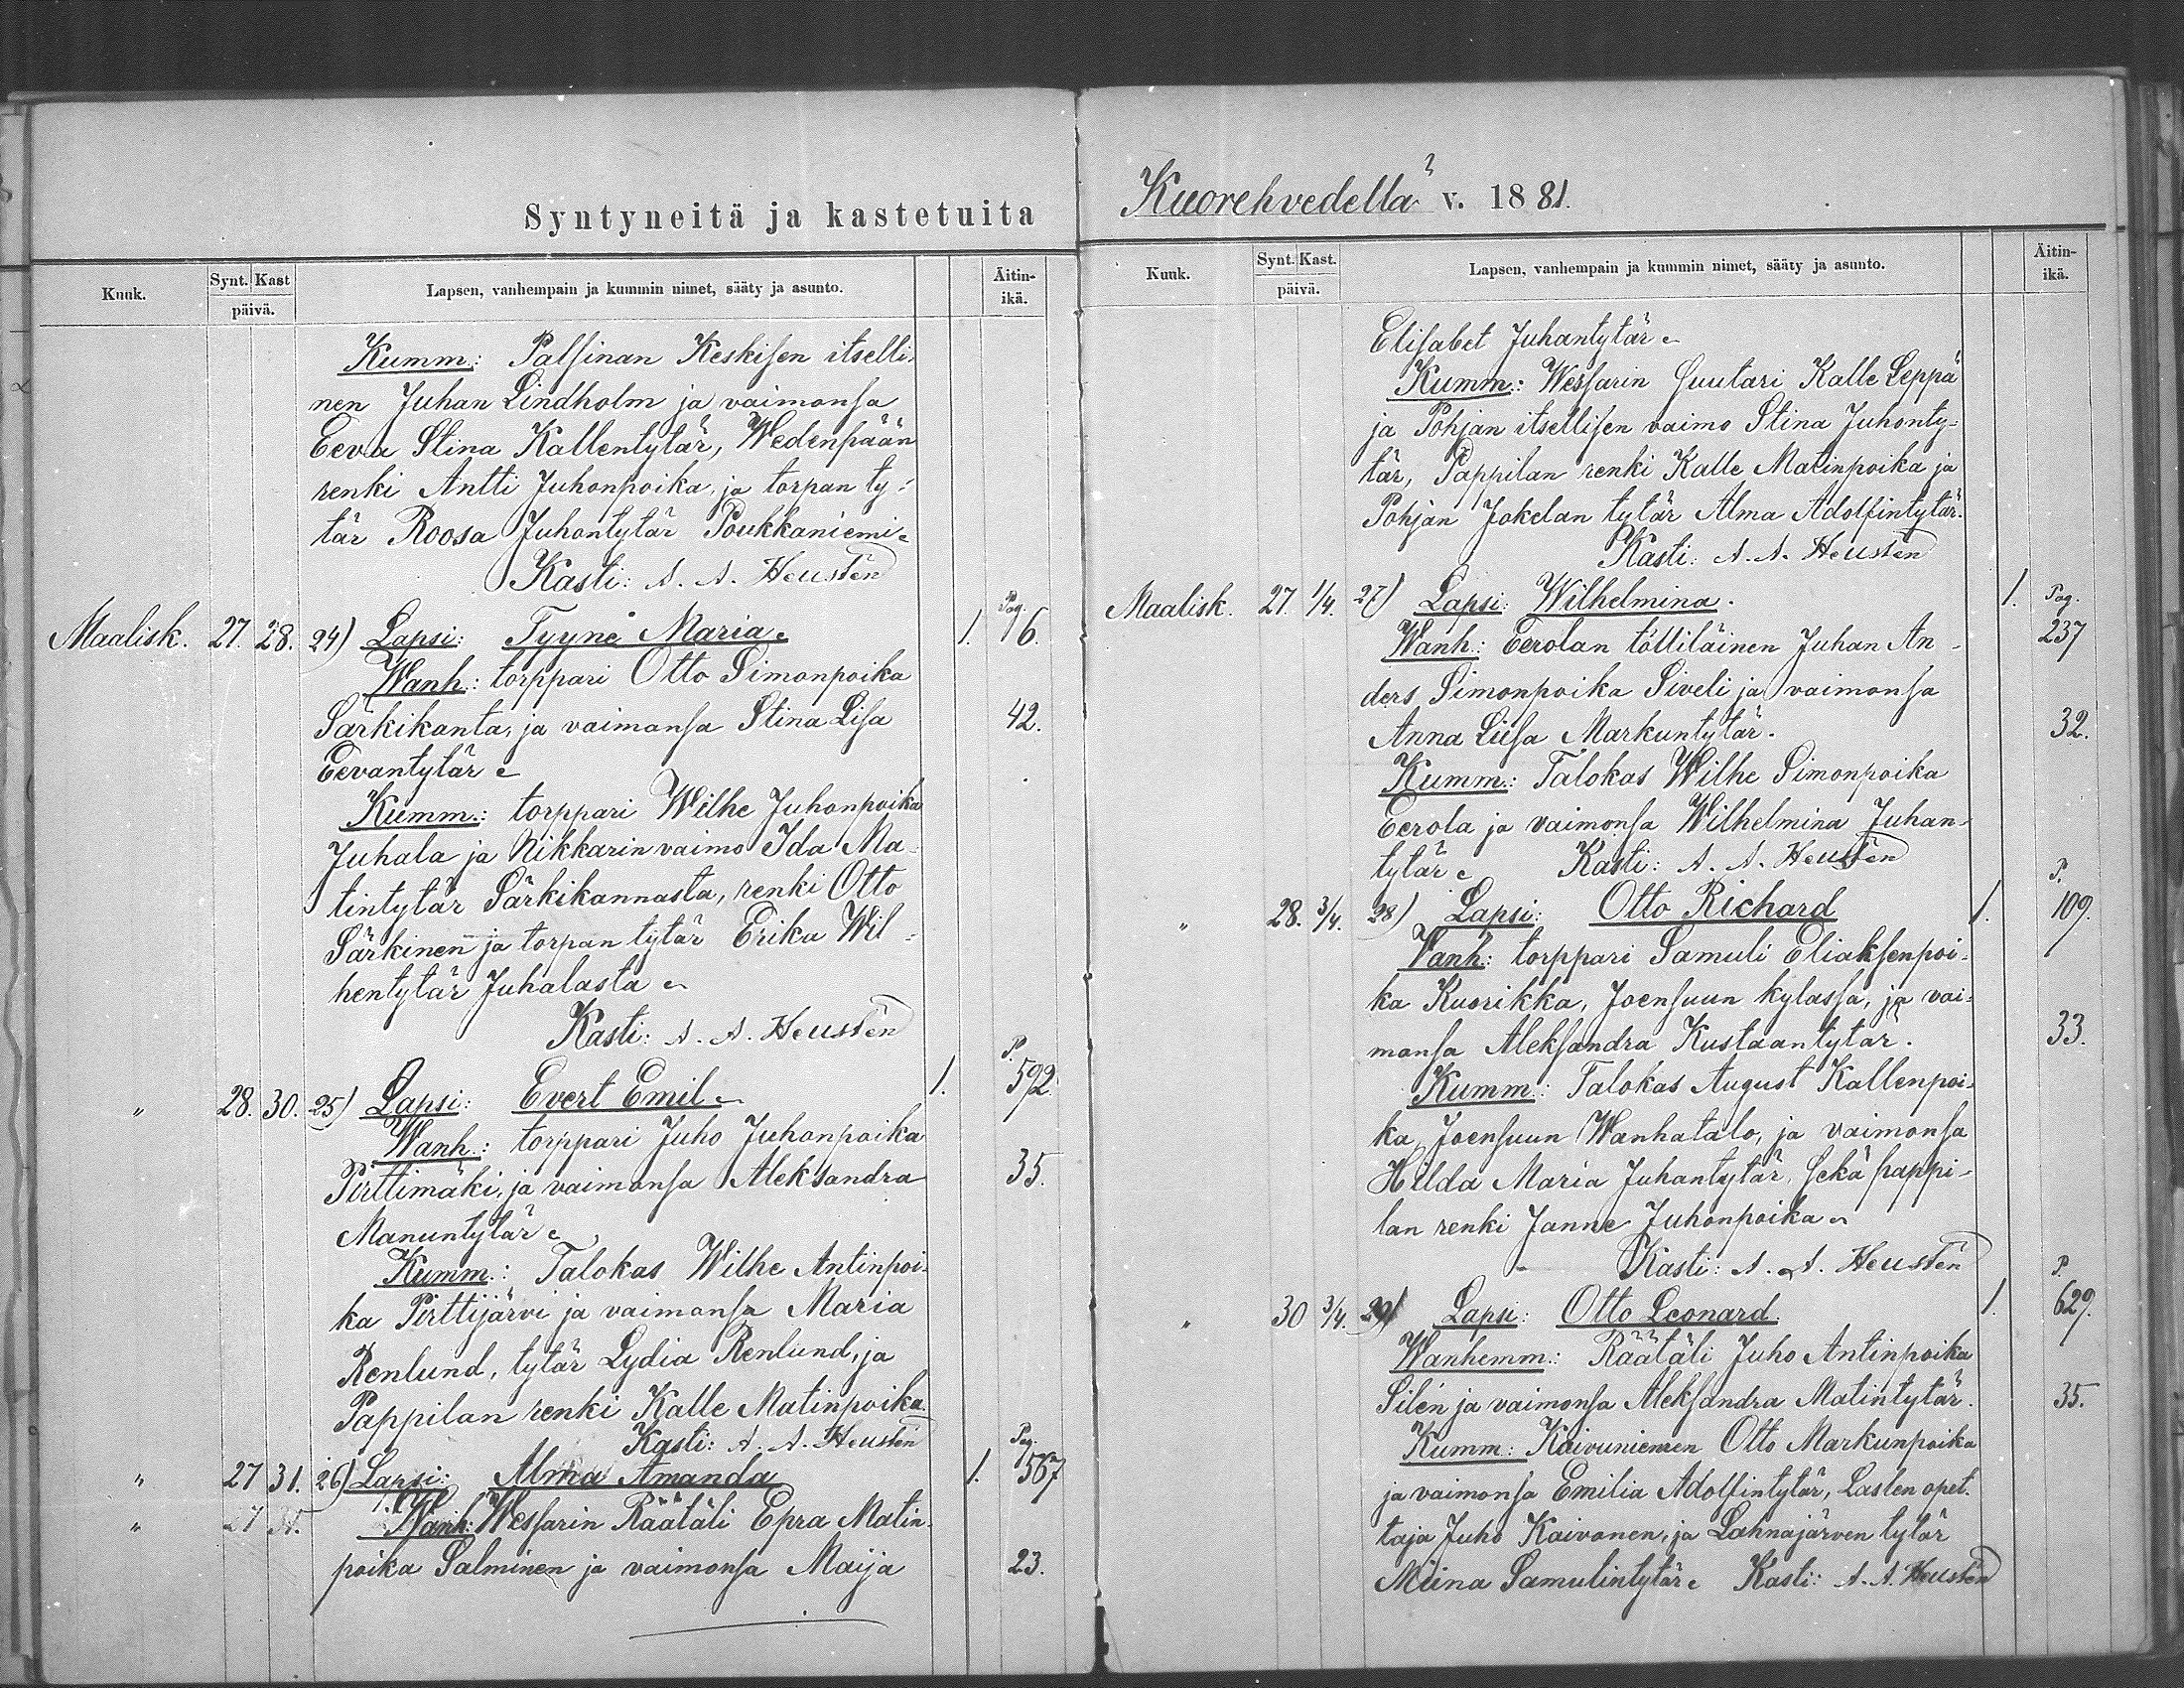 Syntyneitä ja kastetuita
Kuuk. Synt. Kast päivä. Lapsen, vanhempain ja kummin nimet, sääty ja asunto. Äitin-ikä.
Kumm: Palsinan Keskisen itselli-
nen Juhan Lindholm ja vaimonsa
Eeva Stina Kallentytär, Wedenpään
renki Antti Juhonpoika, ja torpan ty-
tär Roosa Juhontytär Poukkaniemi.
Kasti: A. A. Heustén
Pag.
Maalisk. 27. 28. 24) Lapsi: Tyyne Maria. 1. 6.
Wanh: torppari Otto Simonpoika
Särkikanta, ja vaimonsa Stina Lisa 42.
Eevantytär.
Kumm.: torppari Wilhe Juhonpoika
Juhala ja Nikkarin vaimo Ida Ma-
tintytär Särkikannasta, renki Otto
Särkinen ja torpan tytär Erika Wil-
hentytär Juhalasta.
Kasti: A. A. Heustén
P.
" 28. 30. 25) Lapsi: Evert Emil. 1. 592.
Wanh.: torppari Juho Juhonpoika
Pirttimäki, ja vaimonsa Aleksandra 35.
Manuntytär.
Kumm.: Talokas Wilhe Antinpoi-
ka Pirttijärvi ja vaimonsa Maria
Renlund, tytär Lydia Renlund, ja
Pappilan renki Kalle Matinpoika.
Kasti: A. A. Heustén
Pag.
" 27 31. 26) Lapsi: Alma Amanda 1. 567
" 27 31. Wanh: Wessarin Räätäli Epra Matin-
poika Salminen ja vaimonsa Maija 23.
Kuorehvedellä v. 1881.
Kuuk. Synt. Kast. päivä. Lapsen, vanhempain ja kummin nimet, sääty ja asunto. Äitin-ikä.
Elisabet Juhantytär.
Kumm.: Wessarin Suutari Kalle Leppä
ja Pohjan itsellisen vaimo Stina Juhonty-
tär, Pappilan renki Kalle Matinpoika ja
Pohjan Jokelan tytär Alma Adolfintytär.
Kasti: A. A. Heustén
Maalisk. 27. 1/4. 27) Lapsi: Wilhelmina. 1. Pag.
Wanh.: Eerolan töttiläinen Juhan An- 237
ders Simonpoika Siveli ja vaimonsa
Anna Liisa Markuntytär. 32.
Kumm.: Talokas Wilhe Simonpoika
Eerola ja vaimonsa Wilhelmina Juhan-
tytär. Kasti: A. A. Heustén
P.
" 28. 3/4. 28) Lapsi: Otto Richard 1. 109.
Vanh.: torppari Samuli Eliaksenpoi-
ka Kuorikka, Joensuun kylässä, ja vai-
monsa Aleksandra Kustaantytär. 33.
Kumm: Talokas August Kallenpoi-
ka, Joensuun Wanhatalo, ja vaimonsa
Hilda Maria Juhantytär, sekä pappi-
lan renki Janne Juhonpoika.
Kasti: A. A. Heustén
P.
" 30 3/4. 29) Lapsi: Otto Leonard. 1. 629.
Wanhemm.: Räätäli Juho Antinpoika
Silén ja vaimonsa Aleksandra Matintytär. 35.
Kumm: Kaivuniemen Otto Markunpoika
ja vaimonsa Emilia Adolfintytär, Lasten opet-
taja Juho Kaivonen, ja Lahnajärven tytär
Miina Samulintytär. Kasti: A. A. Heustén